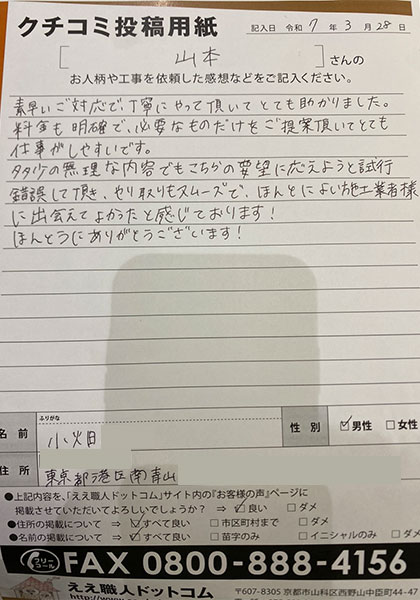 クチコミ投稿用紙
記入日 令和 7 年 3 月 28 日
[ 山本 ] さんの
お人柄や工事を依頼した感想などをご記入ください。
素早いご対応で、丁寧にやって頂いてとても助かりました。
料金も明確で、必要なものだけをご提案頂いてとても
仕事がしやすいです。
多少の無理な内容でもこちらの要望に応えようと試行
錯誤して頂き、やり取りもスムーズで、ほんとによい施工業者様
に出会えてよかったと感じております!
ほんとうにありがとうございます!
ふりがな
名前 小畑
性別 ☑男性 □女性
住所 東京都港区南青山
●上記内容を、「ええ職人ドットコム」サイト内の『お客様の声』ページに
掲載させていただいてよろしいでしょうか? ⇒ ☑良い □ダメ
●住所の掲載について ⇒ ☑すべて良い □市区町村まで □ダメ
●名前の掲載について ⇒ ☑すべて良い □苗字のみ □イニシャルのみ □ダメ
フリーコール FAX 0800-888-4156
ええ職人ドットコム
〒607-8305 京都市山科区西野山中臣町44-4